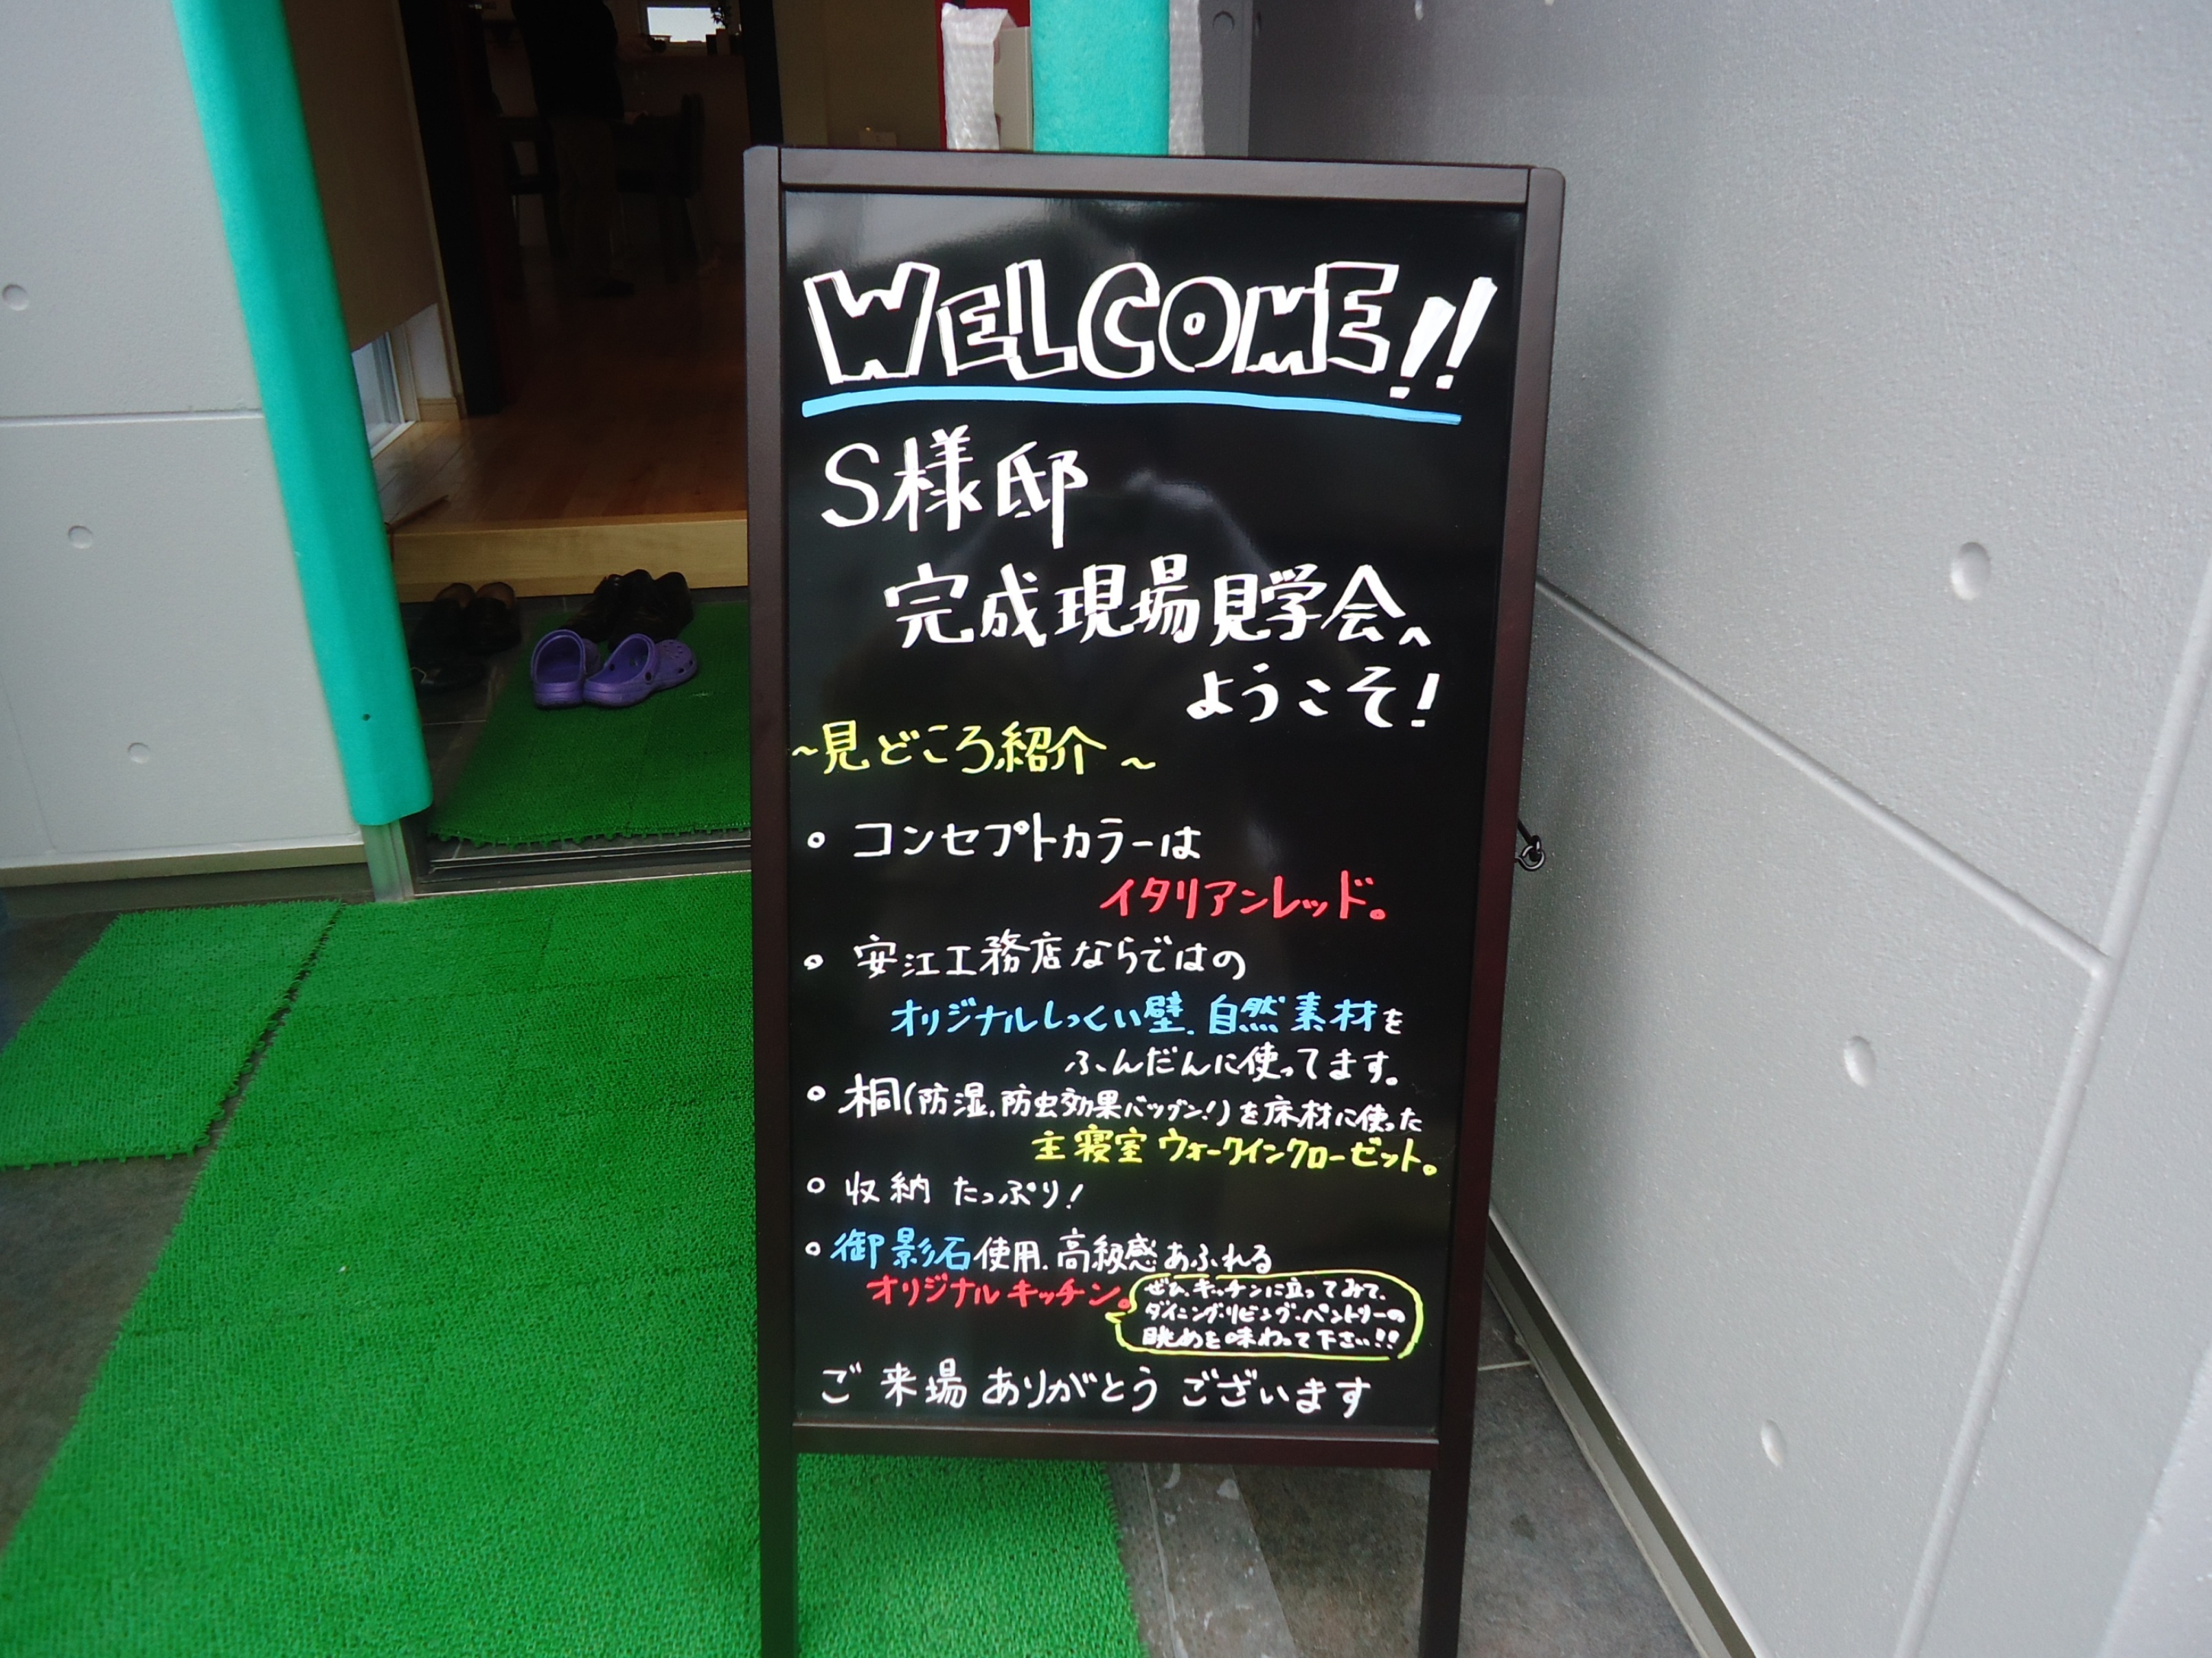 WELCOME!!
S様邸
完成現場見学会へ
ようこそ!
~見どころ紹介~
○ コンセプトカラーは
イタリアンレッド。
○ 安江工務店ならではの
オリジナルしっくい壁、自然素材を
ふんだんに使ってます。
○ 桐(防湿、防虫効果バツグン!)を床材に使った
主寝室ウォークインクローゼット。
○ 収納 たっぷり!
○ 御影石使用、高級感あふれる
オリジナルキッチン。
ぜひ、キッチンに立ってみて、
ダイニング・リビング・パントリーの
眺めを味わって下さい!!
ご来場ありがとうございます